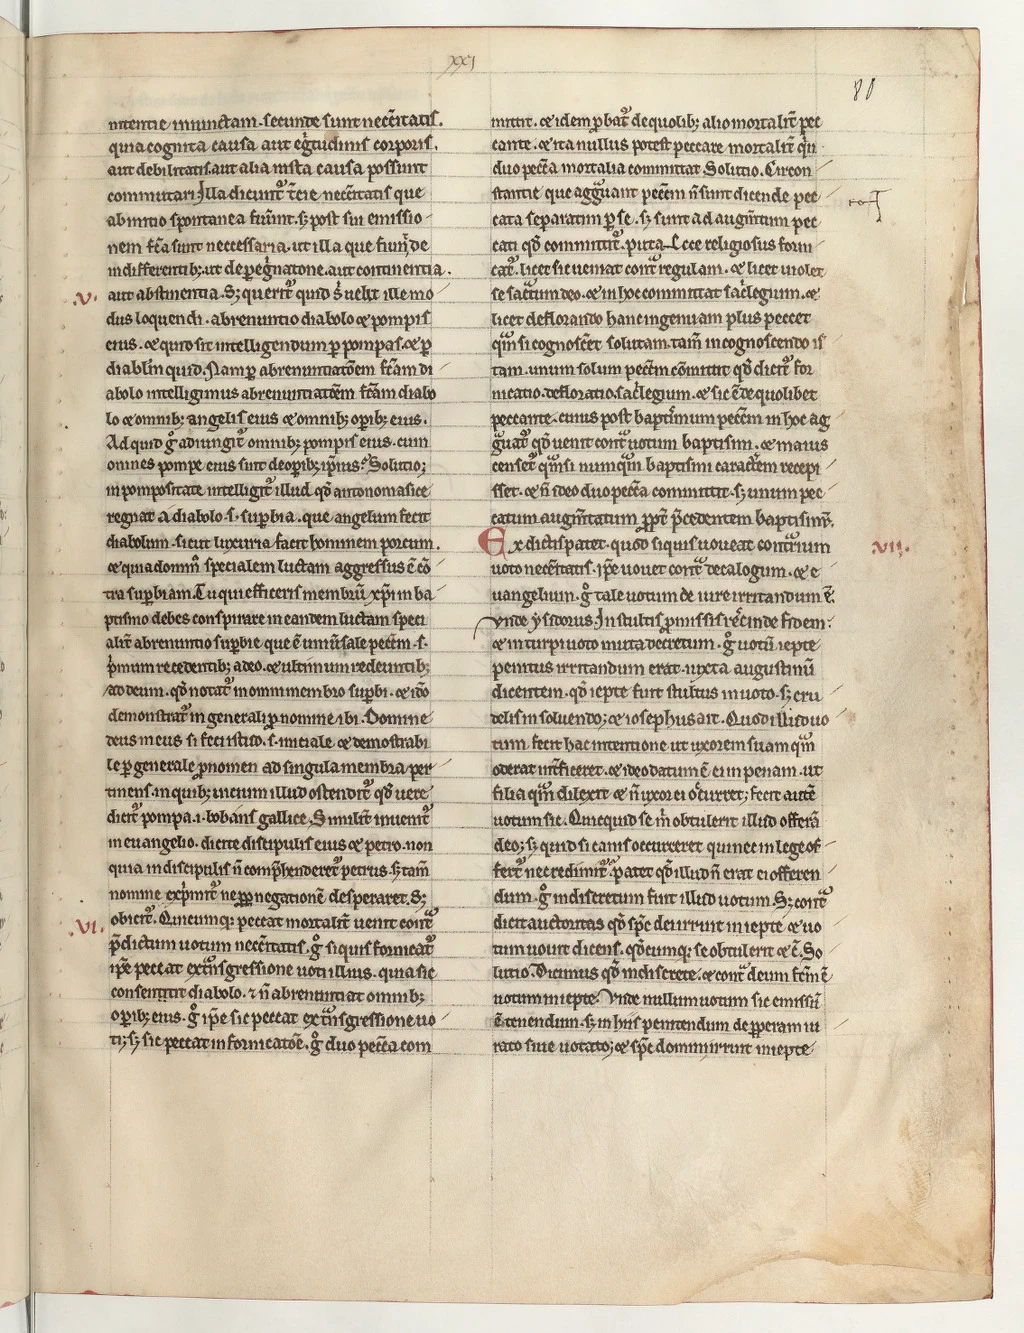 xxj
80
intentie iniunctam. secunde sunt necẽitatis.
quia cognita causa aut eg̃tudinis corporis.
aut debilitatis. aut alia iusta causa possunt
commutari. Illa dicunt᷑ t̃cie necẽitatis que
ab initio spontanea fuer̃nt. sꝫ post sui emissio
nem fc̃a sunt necessaria. ut illa que fiunt de
indifferentibꝫ. ut de peg̃natone. aut continentia.
v.
aut abstinentia. Sꝫ querit᷑ quid s̃ uelit ille mo
dus loquendi. abrenuntio diabolo ⁊ pompis
eius. ⁊ quid sit intelligendum ꝑ pompas. ⁊ ꝑ
diablm̃ quid. Nam ꝑ abrenuntiatõem fc̃am di
abolo intelligimus abrenuntiatõem fc̃am diabo
lo ⁊ omnibꝫ angelis eius ⁊ omnibꝫ oꝑibꝫ eius.
Ad quid g̊ adiungit᷑ omnibꝫ pompis eius. cum
omnes pompe eius sint de oꝑibꝫ ip̃ius. Solutio;
in pompositate intelligit᷑ illud. qđ antonomasice
regnat a diabolo. s. suꝑbia. que angelum fecit
diabolum. sicut luxuria facit hominem porcum.
⁊ quia domin̄ specialem luctam aggressus ẽ cõ
tra suꝑbiam. Tu qui efficeris membrũ xp̃i in ba
ptismo debes conspirare in eandem luctam speci
alit̃ abrenuntio suꝑbie que ẽ uniũsale pecc̃m. s.
p̃mum recedentibꝫ a deo. ⁊ ultimum redeuntibꝫ
ad deum. qđ notat᷑ in omni membro suꝑbi. ⁊ iđo
demonstrat᷑ in generali ꝓnomine ibi. Domine
deus meus si feci istud. s. iniciale ⁊ demostrabi
le ꝑ generale ꝓnomen ad singula membra per
tinens. in quibꝫ uitium illud ostendit᷑ qđ uere
dicit᷑ pompa. i. bobans gallice. Similit̃ inuenit᷑
in euangelio. dicite discipulis eius ⁊ petro. non
quia in discipulis ñ comp̃henderet᷑ petrus. sꝫ tam̃
nomine exp̃mit᷑ ne ꝓpter negationẽ desperaret. Sꝫ
vi.
obicit᷑. Quicumqꝫ peccat mortalit̃ uenit contᷓ
p̃dictum uotum necẽitatis. g̊ si quis fornicat᷑
ip̃e peccat ex tᷓnsgressione uoti illius. quia sic
consentit diabolo. ⁊ ñ abrenuntiat omnibꝫ
oꝑibꝫ eius. g̊ ip̃e sic peccat ex tᷓnsgressione uo
ti; sꝫ sic peccat in fornicatõe. g̊ duo pecc̃a com
mittit. ⁊ idem ꝓbat᷑ de quolibꝫ alio mortalit̃ pec
cante. ⁊ ita nullus potest peccare mortalit̃ qñ
duo pecc̃a mortalia committat. Solutio. Circon
stantie que aggᷓuant pecc̃m ñ sunt dicende pec
cata separatim ꝑ se. sꝫ sunt ad augm̃tum pec
cati qđ committit᷑. puta. Ecce religiosus forni
cat᷑. licet sic ueniat contᷓ regulam. ⁊ licet uiolet
se sac̃tum deo. ⁊ in hoc committat sac̃legium. ⁊
licet deflorando hanc ingenuam plus peccet
qᷓm si cognoscẽt solutam. tam̃ in cognoscendo is
tam. unum solum pecc̃m cõmittit qđ dicit᷑ for
nicatio. defloratio. sac̃legium. ⁊ sic ẽ de quolibet
peccante. cuius post baptism̃um pecc̃m in hoc ag
gᷓuat᷑ qđ uenit contᷓ uotum baptismi. ⁊ maius
censet᷑ qᷓm si numqᷓm baptismi caract̃em recepi
sset. ⁊ ñ ideo duo pecc̃a committit. sꝫ unum pec
catum augm̃tatum ꝓpt̃ p̃cedentem baptism̃.
vii.
Ex dictis patet. quod si quis uoueat contᷓrium
uoto necẽitatis. ip̃e uouet contᷓ decalogum. ⁊ e
uangelium. g̊ tale uotum de iure irritandum ẽ.
Vnde ysidorus. In stultis ꝓmissis rẽcinde fidem.
⁊ in turpi uoto muta decretum. g̊ uotũ iepte
penitus irritandum erat. iuxta augustinũ
dicentem. qđ iepte fuit stultus in uoto. sꝫ cru
delis in soluendo; ⁊ iosephus ait. Quod illud uo
tum fecit hac intentione ut uxorem suam qᷓm
oderat int̃ficeret. ⁊ ideo datum ẽ ei in penam. ut
filia qᷓm dilexit ⁊ ñ uxor ei oc̃urret; fecit autẽ
uotum sic. Quicquid se m̃ obtulerit illud offerã
deo; sꝫ quid si canis occurreret qui nec in lege of
fert᷑ nec redimit᷑. patet qđ illud ñ erat ei offeren
dum. g̊ indiscretum fuit illud uotum. Sꝫ contᷓ
dicit auctoritas qđ sp̃c dei irruit in iepte ⁊ uo
tum uouit dicens. qđcumqꝫ se obtulerit ⁊ c̃. So
lutio. Dicimus qđ indiscrete. ⁊ contᷓ deum fc̃m ẽ
uotum in iepte. Vnde nullum uotum sic emissũ
ẽ tenendum. sꝫ in hiis penitendum de ꝑperam iu
rato siue uotato; ⁊ sp̃c domini irruit in iepte